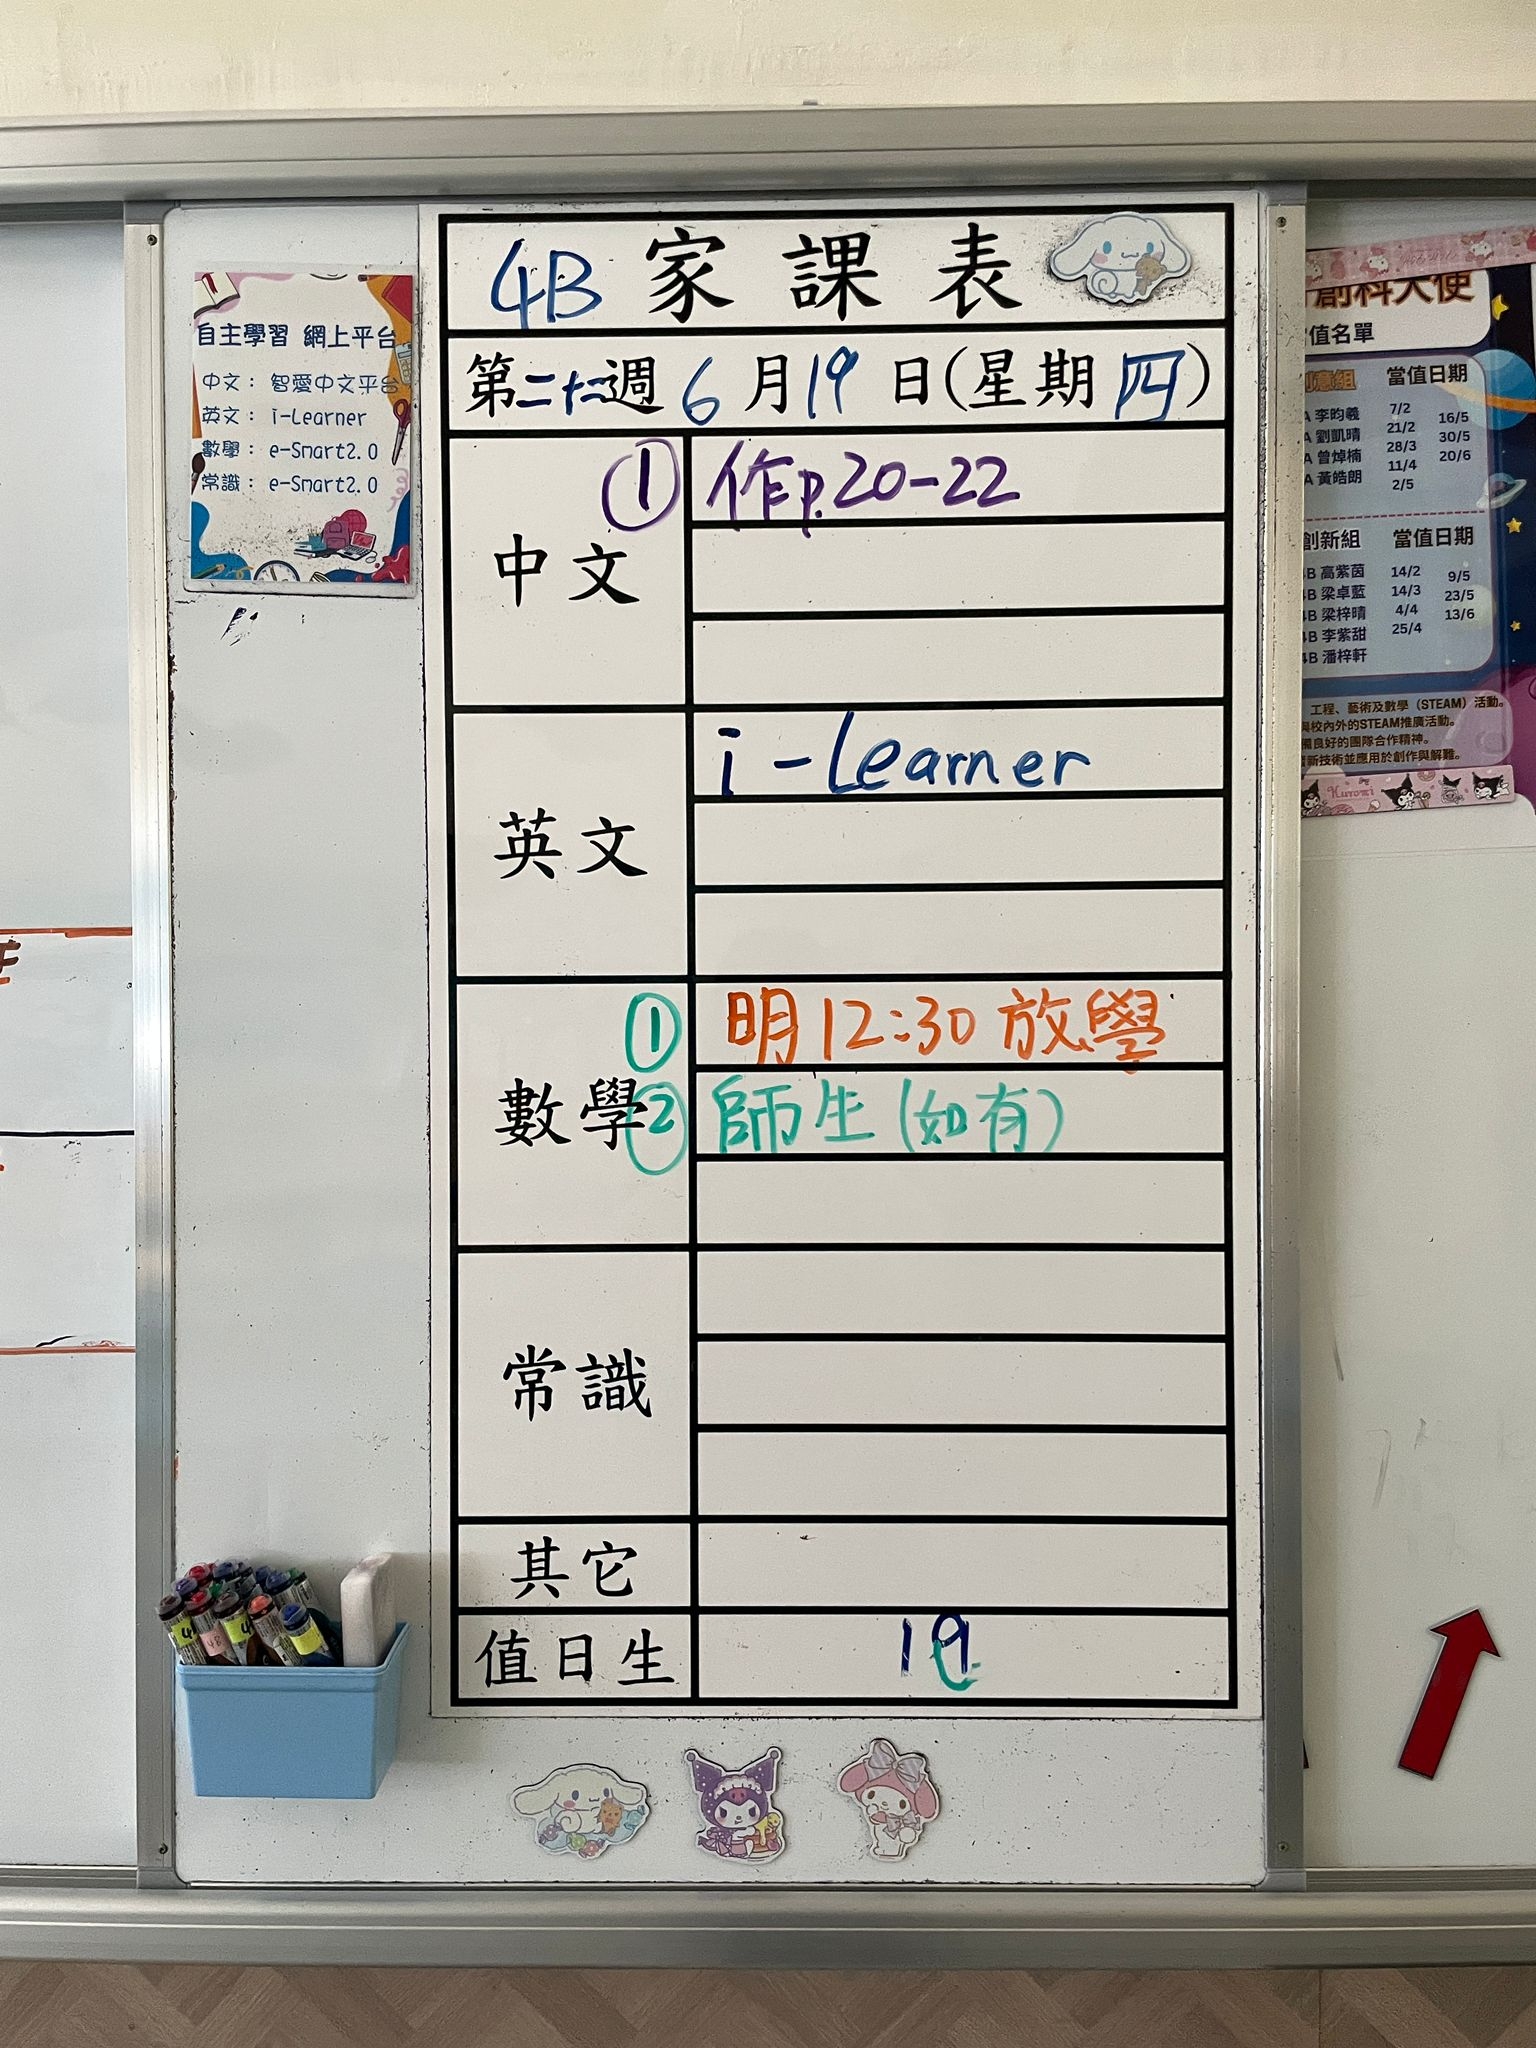 4B 家課表
第二十二週 6月19日(星期四)
中文
① 作p.20-22
英文
i-Learner
數學
① 明12:30放學
② 師生(如有)
常識
其它
值日生 19
自主學習 網上平台
中文： 智愛中文平台
英文： i-Learner
數學： e-Smart2.0
常識： e-Smart2.0
創科大使
值名單
意組 當值日期
A 李昀羲 7/2 16/5
A 劉凱晴 21/2 30/5
A 曾焯楠 28/3 20/6
A 黃皓朗 11/4
2/5
創新組 當值日期
B 高紫茵 14/2 9/5
B 梁卓藍 14/3 23/5
B 梁梓晴 4/4 13/6
B 李紫甜 25/4
B 潘梓軒
工程、藝術及數學（STEAM）活動。
與校內外的STEAM推廣活動。
備良好的團隊合作精神。
新技術並應用於創作與解難。
Kuromi